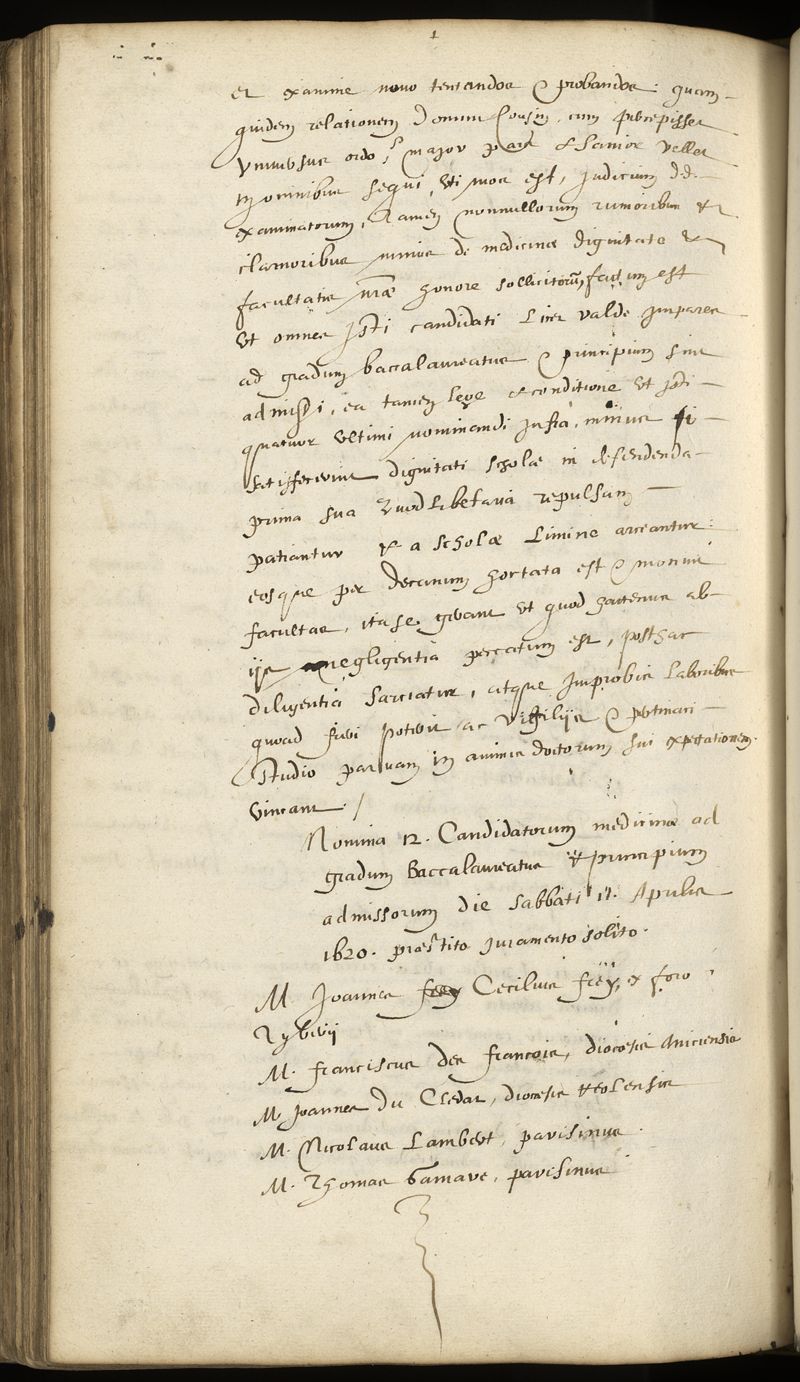 et examine novo tentandos & probandos: quam-
quidem relationem Domini Cousin, cum percepisset
Universus ordo, major pars & sanior vellet
in omnibus sequi, uti mos est, judicium dd.
examinatorum, Tamen nonnullorum rumoribus et
clamoribus nimis de medicinæ dignitate et
facultatis nræ honore sollicitorum, factum est
ut omnes isti candidati licet valde impares
ad gradum baccalaureatus & principium sint
admissi, ea tamen lege & conditione ut isti
quatuor ultimi nominandi infra, minus si
satisfecerint dignitati scholæ in defendenda
prima sua Quodlibetaria repulsam
patiantur et a scholæ limine arceantur:
eosque per decanum hortata est & monuit
facultas, ita se gerant ut quod hactenus ab
iis negligentia peccatum est, posthac
diligentia sarciatur, atque improbis laboribus
quoad fieri poterit ac vigiliis & pertinaci
studio parvam in animis doctorum sui expectationem
vincant. /
Nomina 12. Candidatorum medicinæ ad
gradum Baccalaureatus & principium
admissorum die sabbati 11. Aprilis
1620. præstito juramento solito.
M. Joannes Cecilius frey, ex foro
Tyberij
M. franciscus des francois, diocesis Aniciensis
M. Joannes du Cledat, diocesis
M. Nicolaus Lambert, parisinus.
M. Thomas Gamare, parisinus